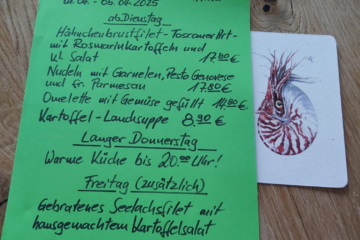 04. - 05.04.2025
ab Dienstag
Hähnchenbrustfilet - Toscaner Art -
mit Rosmarinkartoffeln und
kl. Salat 17.80 €
Nudeln mit Garnelen, Pesto Genovese
und fr. Parmesan 17.80 €
Omelette mit Gemüse gefüllt 14.80 €
Kartoffel - Lauchsuppe 8.90 €
Langer Donnerstag
Warme Küche bis 20.00 Uhr!
Freitag (zusätzlich)
Gebratenes Seelachsfilet mit
hausgemachtem Kartoffelsalat